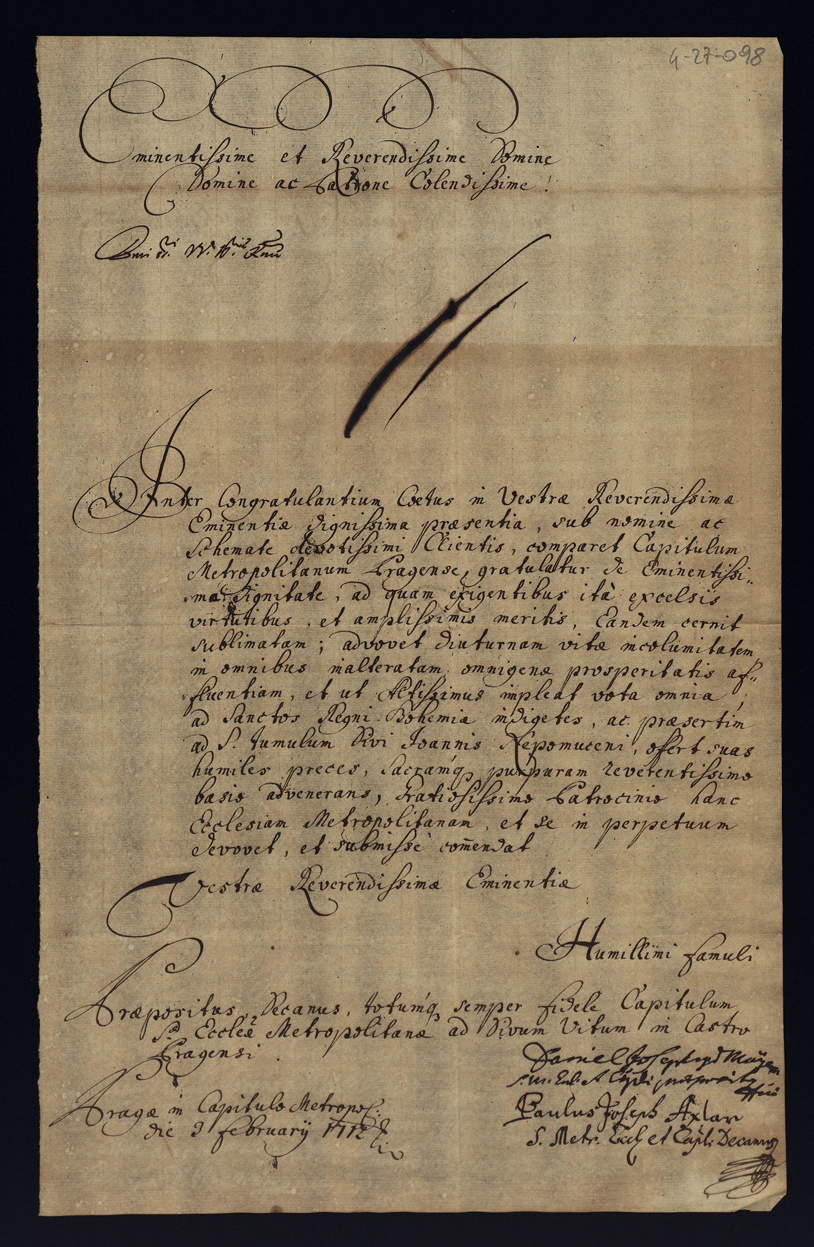 4-27-098
Eminentissime et Reverendissime Domine
Domine ac Patrone Colendissime!
Inter Congratulantium Coetus in Vestræ Reverendissimæ
Eminentiæ dignissima præsentia, sub nomine ac
Schemate devotissimi Clientis, comparet Capitulum
Metropolitanum Pragense, gratulatur de Eminentissi-
ma dignitate, ad quam exigentibus ità excelsis
virtutibus, et amplissimis meritis, Eandem cernit
sublimatam; advovet diuturnam vitæ incolumitatem
in omnibus inalteratam omnigenæ prosperitatis af-
fluentiam, et ut Altissimus impleat vota omnia,
ad Sanctos Regni Bohemiæ indigetes, ac præsertim
ad S. Tumulum Divi Joannis Nepomuceni, offert suas
humiles preces, Sacramq, purpuram reverentissimo
basio advenerans, Gratiosissimo Patrocinio hanc
Ecclesiam Metropolitanam, et se in perpetuum
devovet, et submissè com̄endat
Vestræ Reverendissimæ Eminentiæ
Humillimi famuli
Præpositus, Decanus, totumq, semper fidele Capitulum
S. Eccleæ Metropolitanæ ad Divum Vitum in Castro
Pragensi.
Daniel Joseph Mayer
Pragæ in Capitulo Metropol:
Paulus Joseph Axlar
die 3 February 1712
S. Metr. Eccl. et Capli Decanus